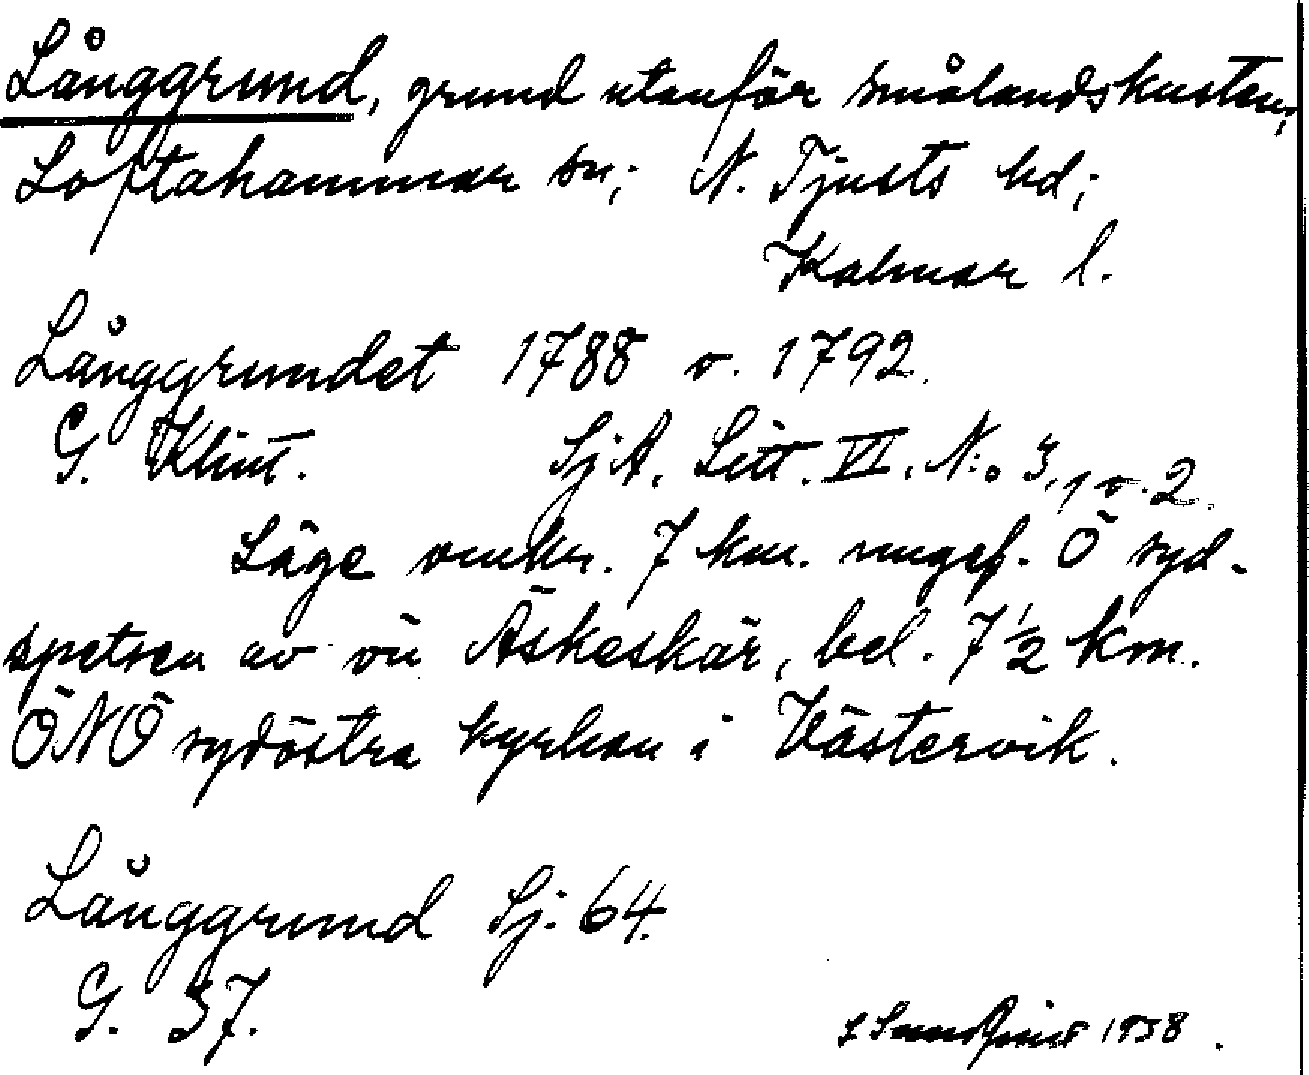 Långgrund, grund utanför smålandskusten;
Loftahammar sn; N. Tjusts hd;
Kalmar l.
Långgrundet 1788 o. 1792.
G. Klint. SjA. Litt. VI. N:o 3, 1 o. 2.
Läge omkr. 7 km. ungef. Ö syd-
spetsen av ön Äskeskär, bel. 7 1/2 km.
ÖNÖ sydöstra kyrkan i Västervik.
Långgrund Sj. 64.
G. 37.
1938.